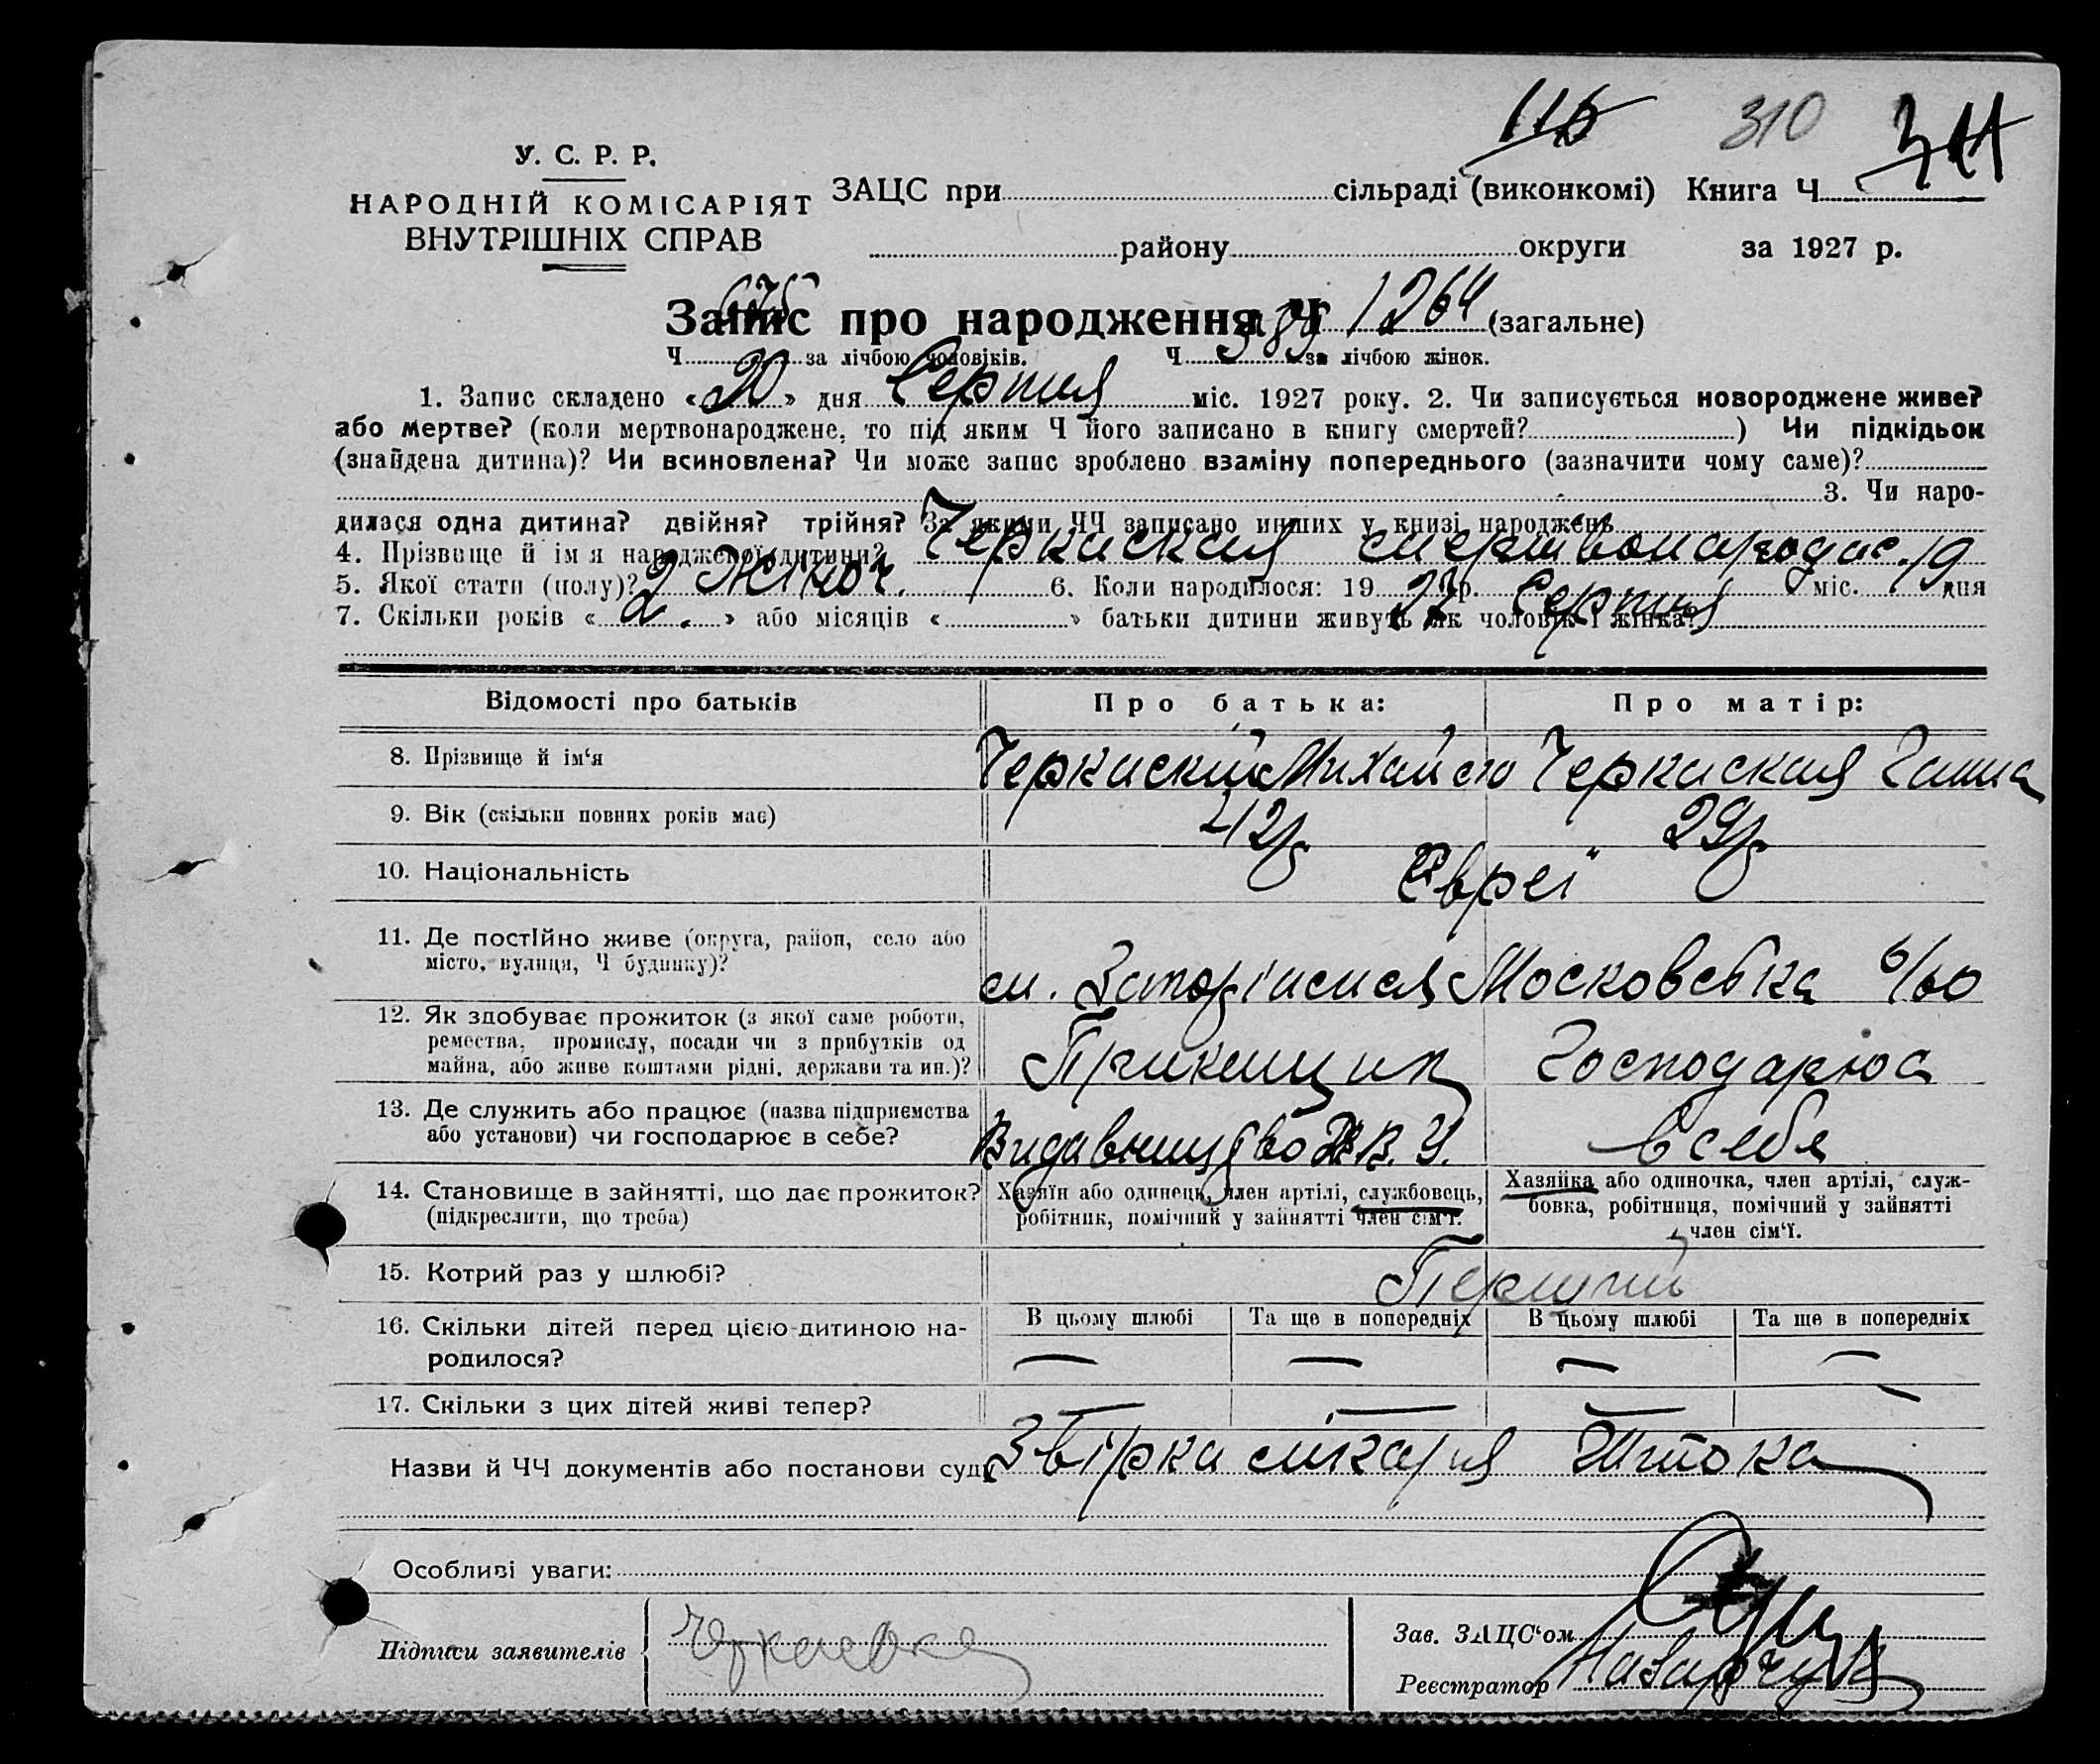 116 310 311
У. С. Р. Р.
НАРОДНІЙ КОМІСАРІЯТ
ВНУТРІШНІХ СПРАВ
ЗАЦС при сільраді (виконкомі) Книга Ч
району округи за 1927 р.
Запис про народження Ч 1264 (загальне)
Ч за лічбою чоловіків. Ч 589 за лічбою жінок.
1. Запис складено « 20 » дня Серпня міс. 1927 року. 2. Чи записується новороджене живе?
або мертве? (коли мертвонароджене, то під яким Ч його записано в книгу смертей? ) Чи підкідьок
(знайдена дитина)? Чи всиновлена? Чи може запис зроблено взаміну попереднього (зазначити чому саме)?
3. Чи наро-
дилася одна дитина? двійня? трійня? За якими ЧЧ записано инших у книзі народжень
4. Прізвище й ім'я народженої дитини? Черкаская мертвонародж.
5. Якої стати (полу)? 2 жіноч. 6. Коли народилося: 19 27 р. Серпня міс. 19 дня
7. Скільки років « 2. » або місяців « » батьки дитини живуть як чоловік і жінка?
Відомості про батьків Про батька: Про матір:
8. Прізвище й ім‘я Черкаский Михайло Черкаская Ганна
9. Вік (скільки повних років має) 42 р 29 р
10. Національність Євреї
11. Де постійно живе (округа, район, село або
місто, вулиця, Ч будинку)? м. Московська 6/60
12. Як здобуває прожиток (з якої саме роботи,
ремества, промислу, посади чи з прибутків од
майна, або живе коштами рідні, держави та ин.)? Прикащик Господарює
13. Де служить або працює (назва підприємства
або установи) чи господарює в себе? Видавництво В. У. в себе
14. Становище в зайнятті, що дає прожиток?
(підкреслити, що треба)
Хазяїн або одинець, член артілі, службовець,
робітник, помічний у зайнятті член сім‘ї.
Хазяйка або одиночка, член артілі, служ-
бовка, робітниця, помічний у зайнятті
член сім‘ї.
15. Котрий раз у шлюбі? Перший
16. Скільки дітей перед цією дитиною на-
родилося?
В цьому шлюбі Та ще в попередніх В цьому шлюбі Та ще в попередніх
— — — —
17. Скільки з цих дітей живі тепер? — — — —
Назви й ЧЧ документів або постанови суду Звірка лікаря Штока
Особливі уваги:
Підписи заявителів Черкаська
Зав. ЗАЦС‘ом
Реєстратор Назарчук